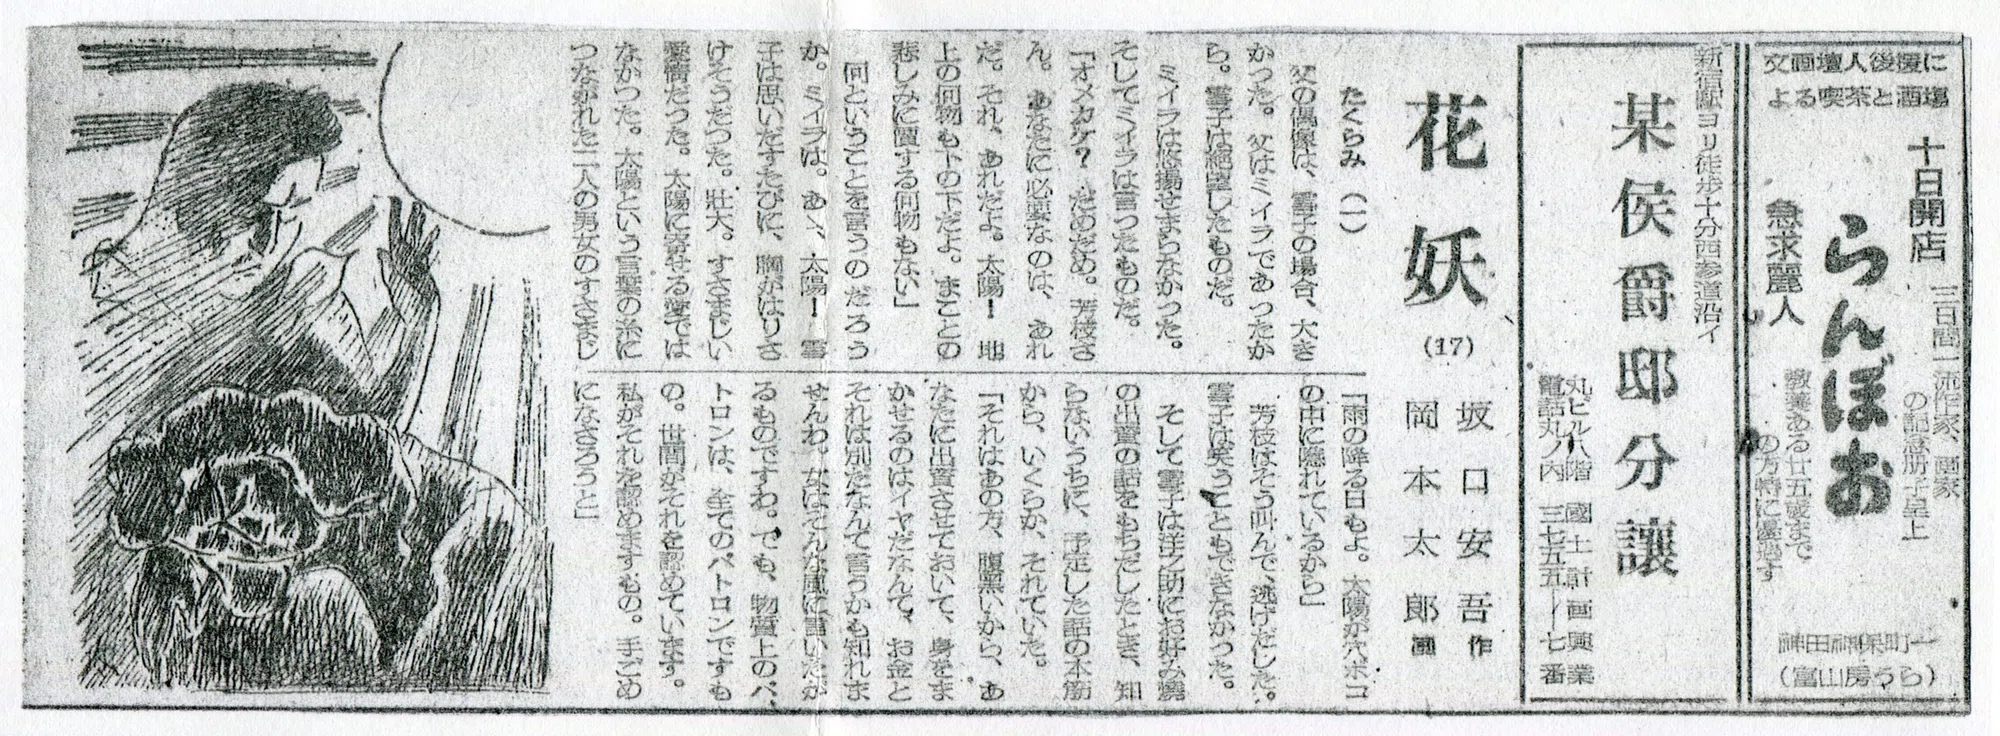 文画壇人後援に
よる喫茶と酒場
十日開店
三日間一流作家、画家
の記念册子呈上
らんぼお
急求麗人
教養ある廿五歳まで
の方特に優遇す
神田神保町一
(冨山房うら)
新宿駅ヨリ徒歩十分西参道沿イ
某侯爵邸分讓
丸ビル八階 國土計画興業
電話丸ノ内 三七五五―七番
花妖
(17)
坂口安吾作
岡本太郎画
たくらみ (一)
父の偶像は、雪子の場合、大き
かつた。父はミイラであつたか
ら。雪子は絶望したものだ。
ミイラは悠揚せまらなかつた。
そしてミイラは言つたものだ。
「オメカケ? だめだめ。芳枝さ
ん。あなたに必要なのは、あれ
だ。それ、あれだよ。太陽! 地
上の何物も下の下だよ。まことの
悲しみに價する何物もない」
何ということを言うのだろう
か。ミイラは。あゝ、太陽! 雪
子は思いだすたびに、胸がはりさ
けそうだつた。壯大。すさまじい
愛情だつた。太陽に寄せる愛では
なかつた。太陽という言葉の糸に
つながれた二人の男女のすさまじ
「雨の降る日もよ。太陽が穴ボコ
の中に隱れているから」
芳枝はそう叫んで、逃げだした。
雪子は笑うこともできなかつた。
そして雪子は洋之助にお好み燒
の出資の話をもちだしたとき、知
らないうちに、予定した話の本筋
から、いくらか、それていた。
「それはあの方、腹黒いから、あ
なたに出資させておいて、身をま
かせるのはイヤだなんて、お金と
それは別だなんて言うかも知れま
せんわ。女はそんな風に言いたが
るものですわ。でも、物質上のパ
トロンは、全てのパトロンですも
の。世間がそれを認めています。
私がそれを認めますもの。手ごめ
になさろうと」